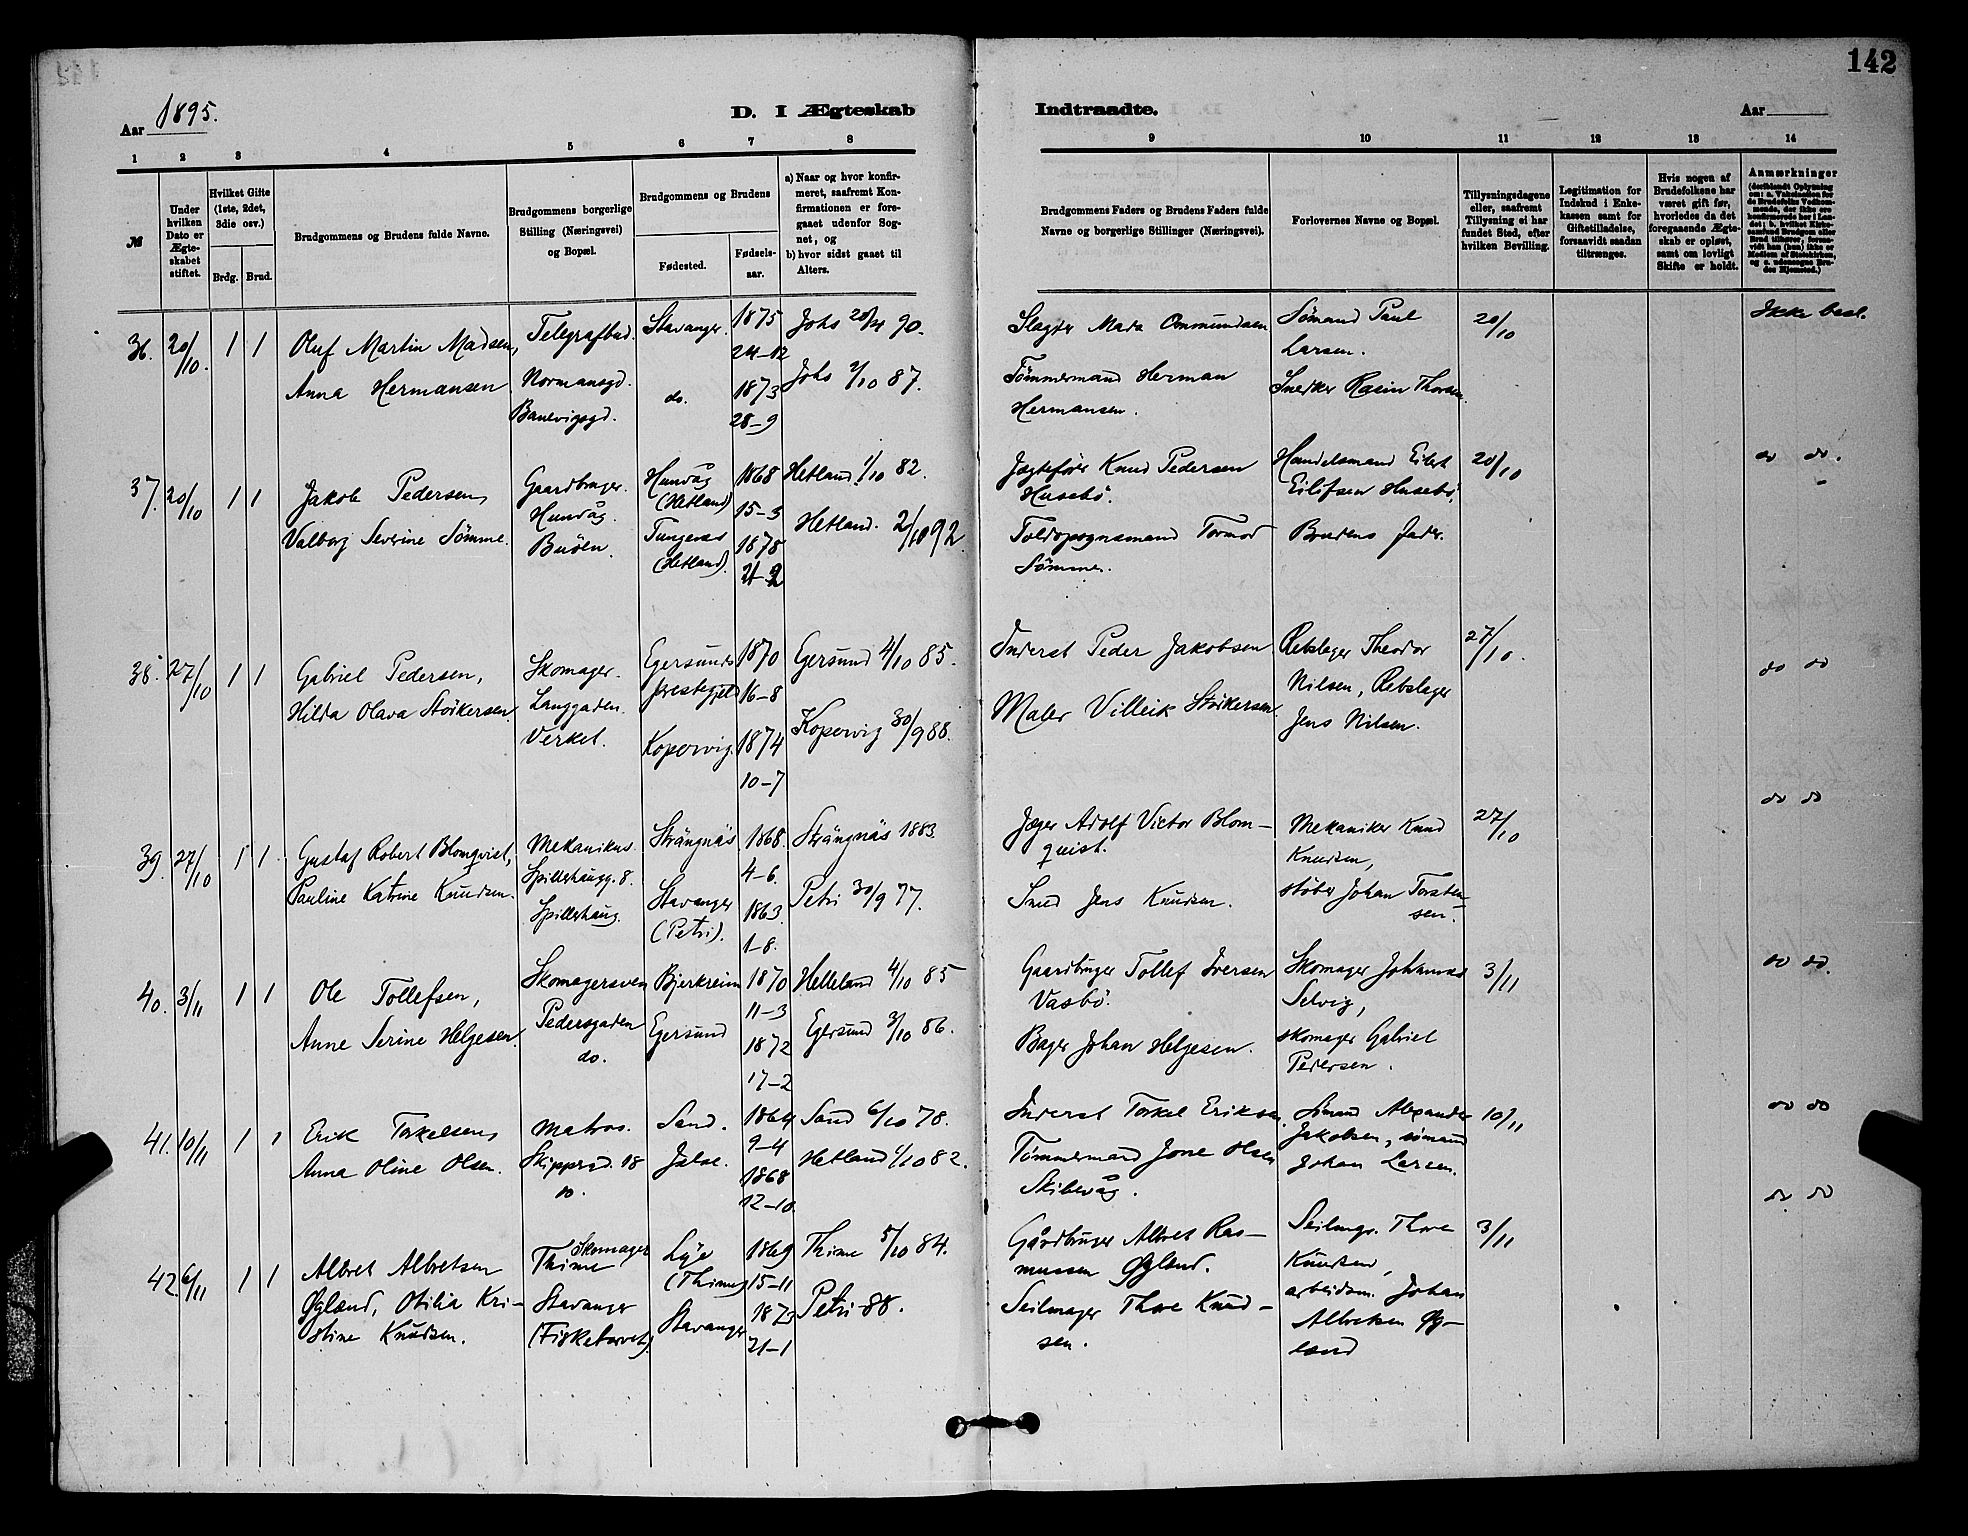 142
Aar 1895.
D. I Ægteskab
Indtraadte.
Aar
1 2 3 4 5 6 7 8
9 10 11 12 13 14
№
Under hvilken Dato er Ægteskabet stiftet.
Hvilket Gifte (1ste, 2det, 3die osv.)
Brdg. Brud.
Brudgommens og Brudens fulde Navne.
Brudgommens borgerlige Stilling (Næringsvei) og Bopæl.
Brudgommens og Brudens
Fødested.
Fødselsaar.
a) Naar og hvor konfirmeret, saafremt Konfirmationen er foregaaet udenfor Sognet, og
b) hvor sidst gaaet til Alters.
Brudgommens Faders og Brudens Faders fulde Navne og borgerlige Stillinger (Næringsvei).
Forlovernes Navne og Bopæl.
Tillysningsdagene eller, saafremt Tillysning ei har fundet Sted, efter hvilken Bevilling.
Legitimation for Indskud i Enkekassen samt for Giftetilladelse, forsaavidt saadan tiltrænges.
Hvis nogen af Brudefolkene har været gift før, hvorledes da det foregaaende Ægteskab er opløst, samt om lovligt Skifte er holdt.
Anmærkninger
36. 20/10. 1 1
Oluf Martin Madsen,
Anna Hermansen
Telegrafbud.
Normansgd.
Banevigsgd.
Stavanger.
do.
1875
24-12
1873
28-9
Johs 20/4 90.
Johs 2/10 87.
Slagter Mads Ommundsen
Tømmermand Herman
Hermansen.
Sømand Paul
Larsen.
Snedker Rasin Thorsen.
20/10
Ikke besl.
37. 20/10 1 1
Jakob Pedersen,
Valborg Severine Sømme.
Gaardbruger.
Hundvåg.
Buøen.
Hundvåg
(Hetland)
Tungenes
(Hetland).
1868
15-3
1878
21-2
Hetland 1/10 82.
Hetland. 2/10 92.
Jægtefører Knud Pedersen
Husebø.
Toldopsynsmand Tormod
Sømme.
Handelsmand Eilert
Eilefsen Husebø,
Brudens Fader.
20/10
do do.
38. 27/10 1 1
Gabriel Pedersen,
Hilda Olava Størkersen
Skomager.
Langgaden.
Verket.
Egersunds
prestegjeld
Kopervig.
1870
16-8
1874
10-7
Egersund 4/10 85.
Kopervig 30/9 88.
Inderst Peder Jakobsen
Maler Villeik Størkersen.
Rebslager Theodor
Nilsen, Rebslager
Jens Nilsen.
27/10.
do do
39. 27/10 1 1.
Gustaf Robert Blomqvist,
Pauline Katrine Knudsen.
Mekanikus.
Spilderhaugg. 8.
Spilderhaug.
Strängnäs
Stavanger
(Petri).
1868.
4-6.
1863.
1-8.
Strängnäs 1883.
Petri 30/9 77.
Jæger Adolf Victor Blom-
quist.
Smed Jens Knudsen.
Mekaniker Knud
Knudsen,
støber Johan Torsten-
sen.
27/10
do do
40. 3/11 1 1
Ole Tollefsen,
Anne Serine Helgesen.
Skomagersven
Pedersgaden
do.
Bjerkreim
Egersund
1870
11-3
1872
17-2
Helleland 4/10 85
Egersund 3/10 86.
Gaardbruger Tollef Iversen
Vasbø.
Bager Johan Helgesen.
Skomager Johannes
Selvig,
skomager Gabriel
Pedersen.
3/11
do do.
41. 10/11 1 1
Erik Torkelsen,
Anna Oline Olsen.
Matros.
18
do.
Sand.
Jelse.
1864
9-4
1868
12-10
Sand 6/10 78.
Hetland 1/10 82.
Inderst Torkel Eriksen.
Tømmermand Jone Olsen
Skibevåg.
Sømand Alexander
Jakobsen, sømand
Johan Larsen.
10/11
do do
42. 6/11 1 1
Albret Albretsen
Øgland, Otilia Kri-
stine Knudsen.
Skomager
Thime
Stavanger
(Fisketorvet).
Lye
(Thime)
Stavanger
1869
15-11
1873
21-1
Thime 5/10 84.
Petri 88.
Gårdbruger Albret Ras-
mussen Øgland.
Seilmager Thore Knud-
sen.
Seilmgr. Thore
Knudsen,
arbeidsm. Johan
Albretsen Øg-
land
3/11
do do